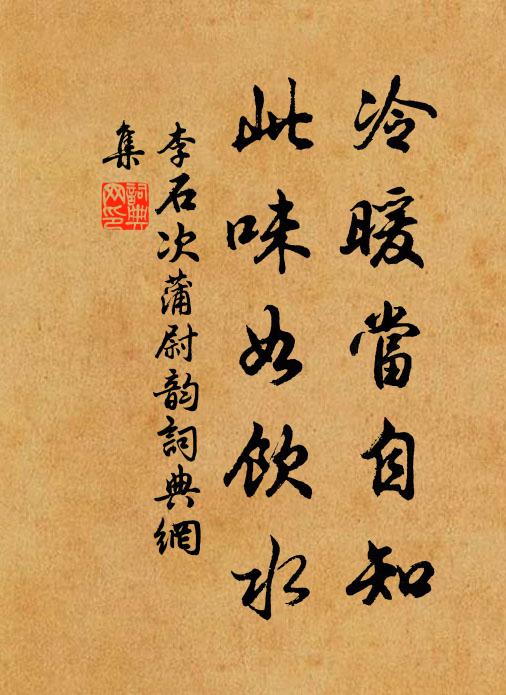 冷暖當自知
此味如飲水
李石次蒲尉韵詞典網
集
詞典網印